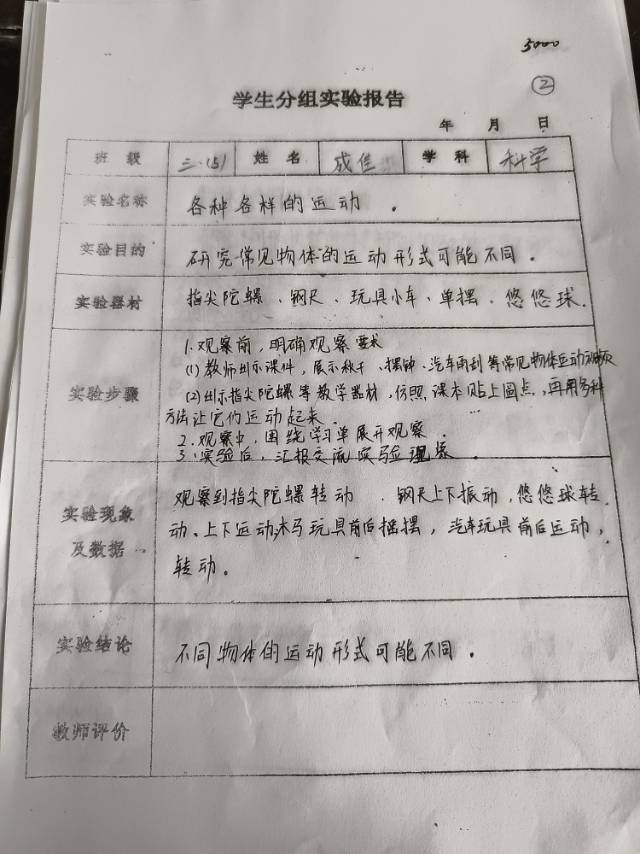 5000
②
学生分组实验报告
年 月 日
班 级 三.(5) 姓 名 成佳 学 科 科学
实验名称 各种各样的运动 .
实验目的 研究常见物体的运动形式可能不同.
实验器材 指尖陀螺、钢尺、玩具小车、单摆、悠悠球.
实验步骤
1.观察前,明确观察要求
(1)教师出示课件,展示秋千、摆钟、汽车雨刮等常见物体运动
(2)出示指尖陀螺等教学器材,仿照课本贴上圆点,再用多种
方法让它们运动起来.
2.观察中,围绕学习单展开观察.
3.实验后,汇报交流实验现象.
实验现象
及数据
观察到指尖陀螺转动 . 钢尺上下振动,悠悠球转
动、上下运动.木马玩具前后摇摆,汽车玩具前后运动,
转动。
实验结论 不同物体的运动形式可能不同.
教师评价